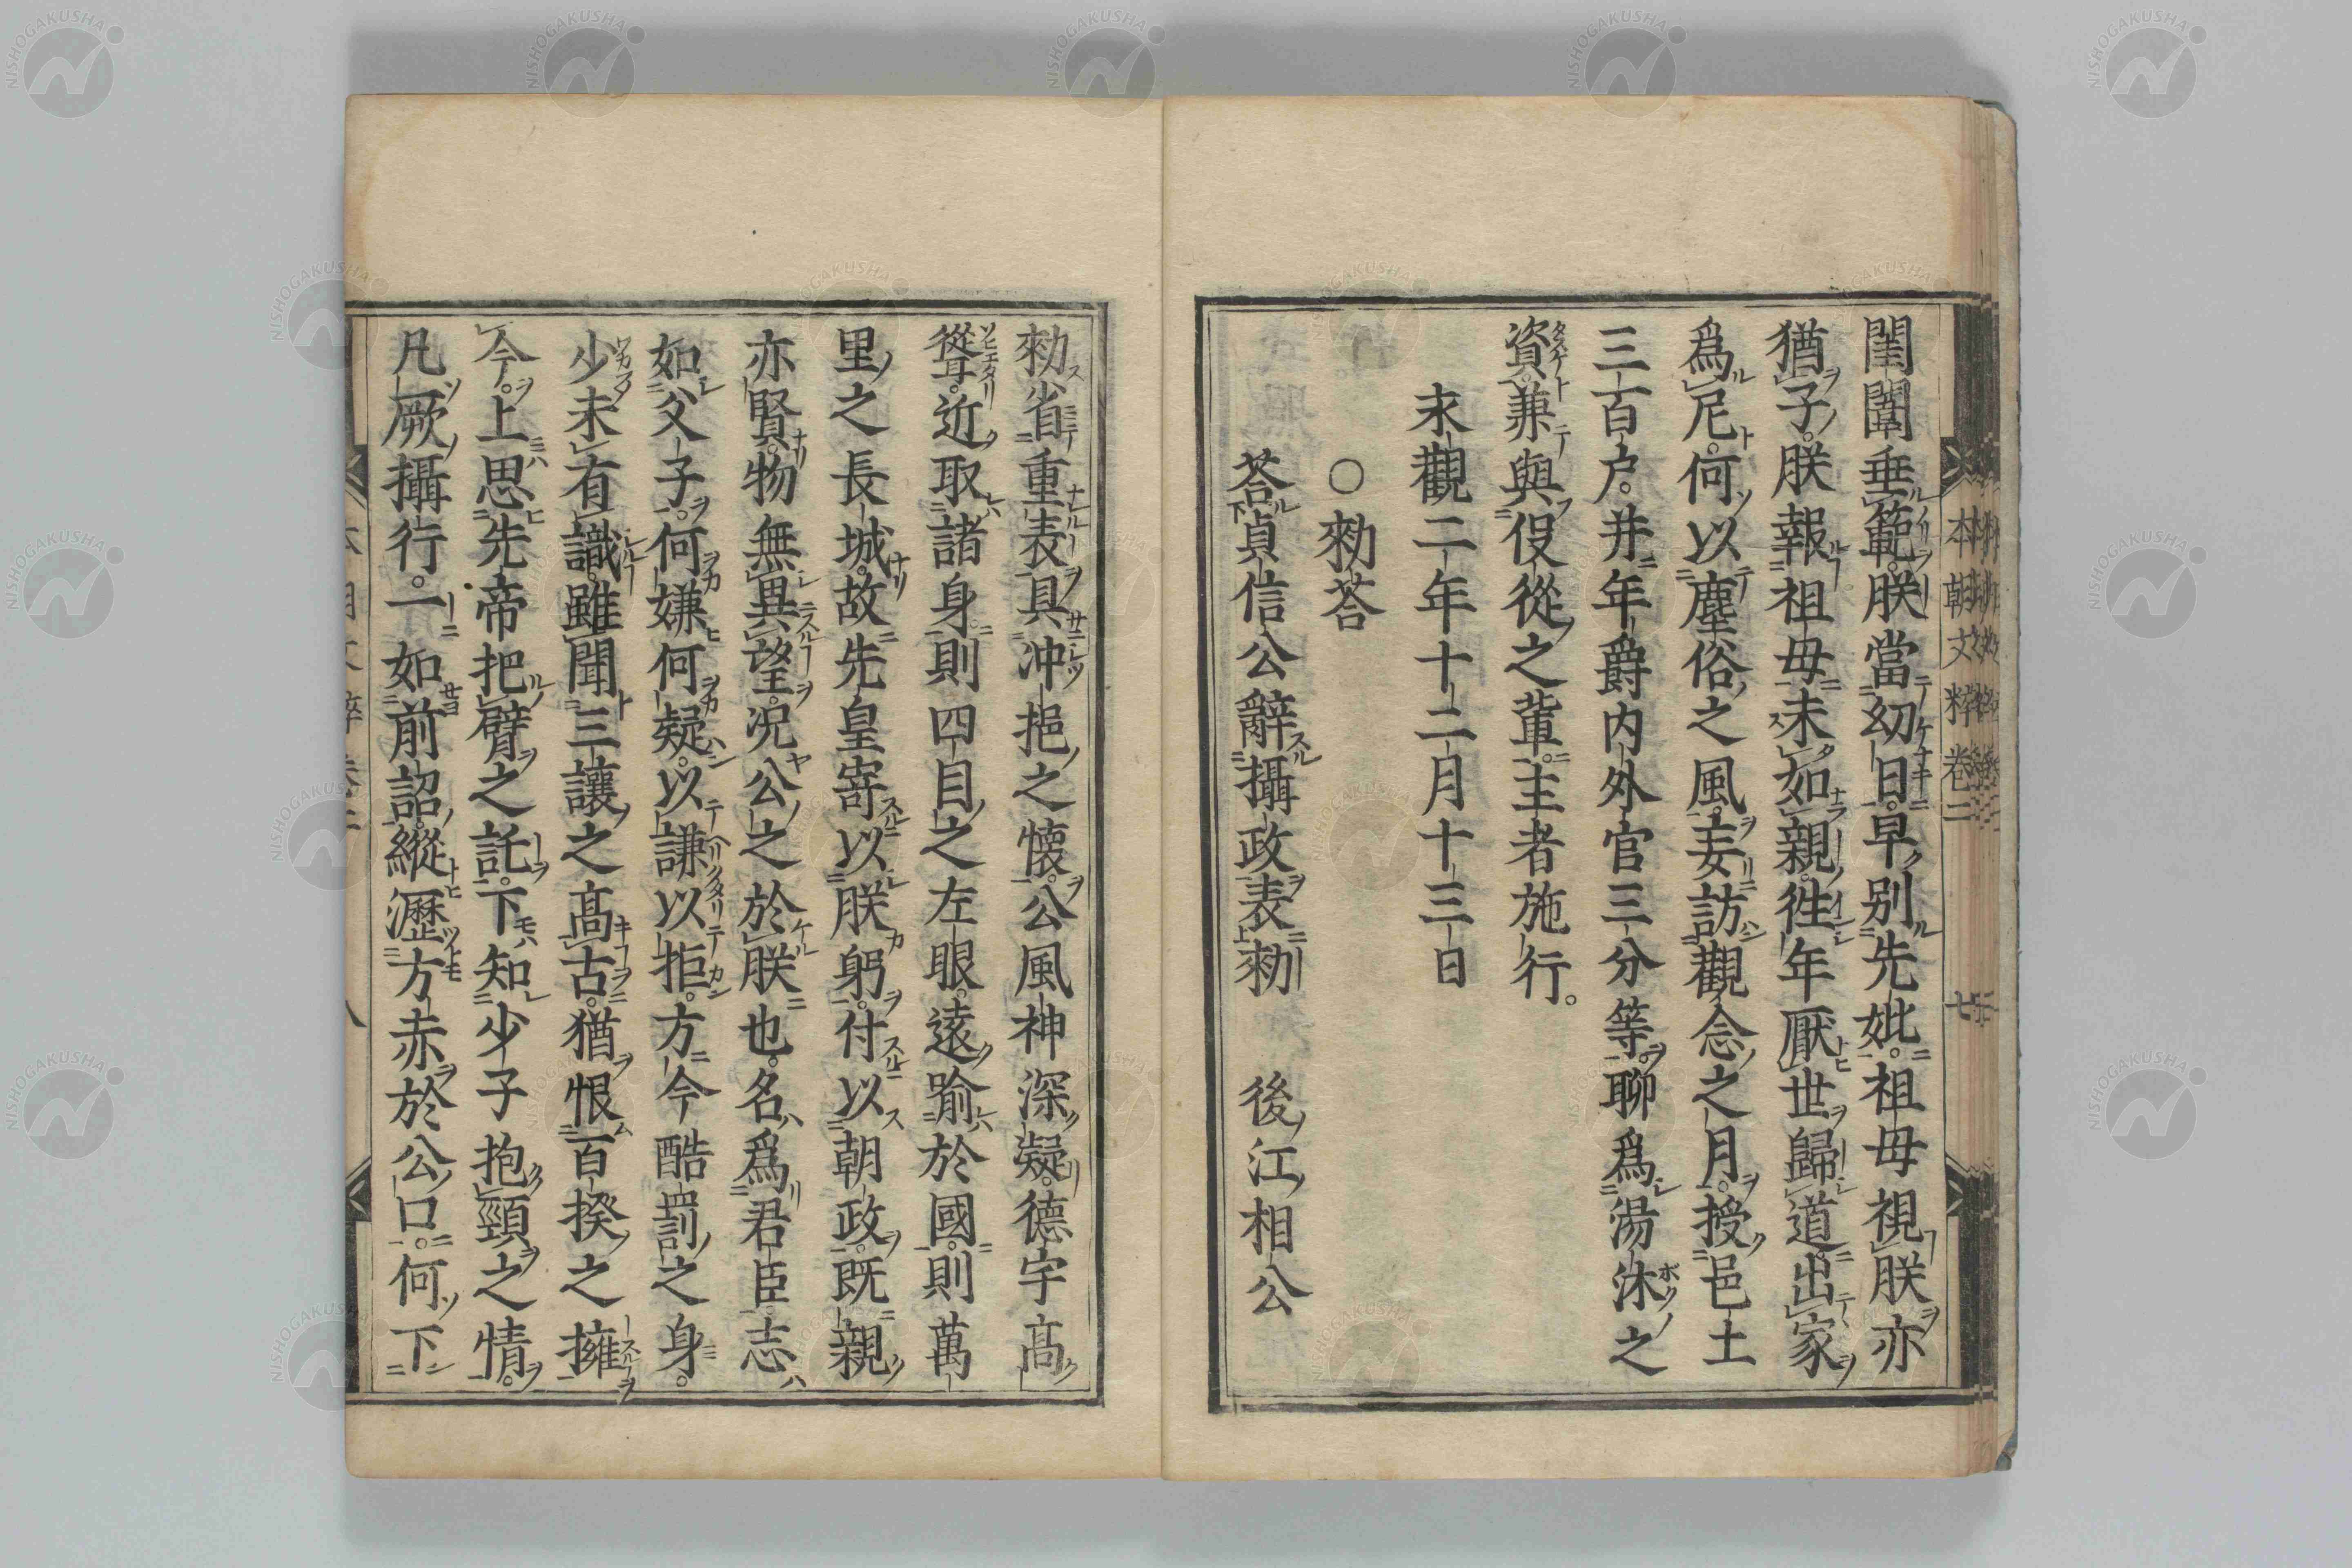 閨闈垂範。朕當幼日。早別先妣。祖母視朕亦
猶子。朕報祖母未如親。徃年厭世歸道。出家
爲尼。何以塵俗之風。妄訪觀念之月。授邑土
三百户。并年爵内外官三分等。聊爲湯沐之
資。兼與伇從之輩。主者施行。
永觀二年十二月十三日
○勅荅
荅貞信公辭攝政表勅 後江相公
勅省重表具冲挹之懐。公風神深凝。德宇髙
聳。近取諸身。則四目之左眼。遠喻於國。則萬
里之長城。故先皇寄以朕躬。付以朝政。既親
亦賢。物無異望。况公之於朕也。名爲君臣。志
如父子。何嫌何疑。以謙以拒。方今酷罰之身。
少未有識。雖聞三讓之髙古。猶恨百揆之擁
今。上思先帝把臂之託。下知少子抱頸之情。
凡厥攝行。一如前詔。縱瀝方赤於公口。何下
本朝文粹卷二 七
NISHOGAKUSHA